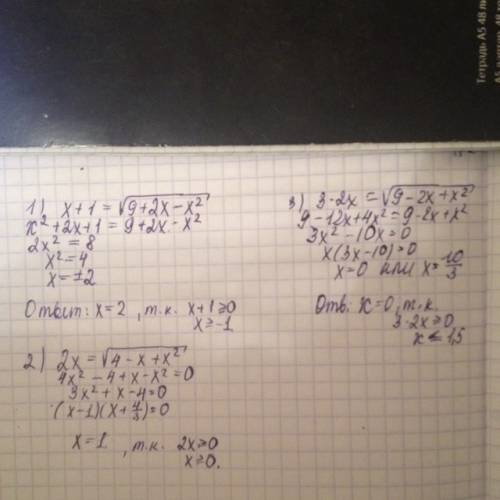 Тетрадь А5 48 ли
1) x+1 = √(9+2x-x²)
x²+2x+1 = 9+2x-x²
2x² = 8
x² = 4
x = ±2
Ответ: x=2, т.к. x+1≥0
x≥-1
2) 2x = √(4-x+x²)
4x²-4+x-x²=0
3x²+x-4=0
(x-1)(x+4/3)=0
x=1, т.к. 2x≥0
x≥0.
3) 3-2x = √(9-2x+x²)
9-12x+4x²=9-2x+x²
3x²-10x=0
x(3x-10)=0
x=0 или x=10/3
Отв: x=0, т.к.
3-2x≥0
x≤1,5